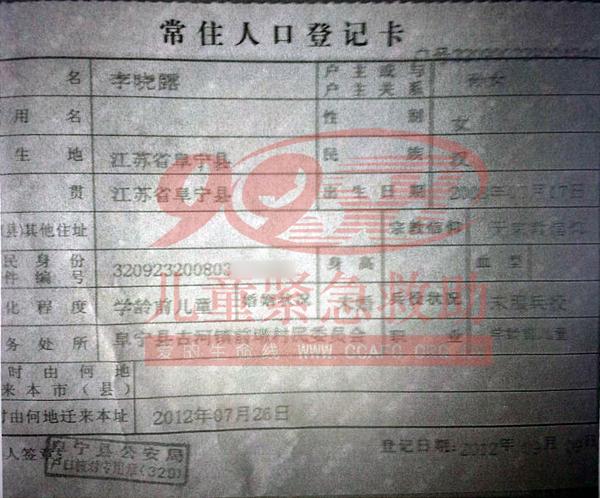 常住人口登记卡
户号
名 李晓露 户主或与户主关系 孙女
用名 性别 女
生地 江苏省阜宁县 民族 汉
贯 江苏省阜宁县 出生日期
县)其他住址 宗教信仰 无宗教信仰
民身份件编号 320923200803 身高 血型
儿童紧急救助
化程度 学龄前儿童 婚姻状况 未婚 兵役状况 未服兵役
务处所 阜宁县古河镇 村居委员会 职业 学龄前儿童
爱的生命线 WWW.CCAFC.ORG.CN
时由何地
来本市(县)
时由何地迁来本址 2012年07月26日
人签章: 登记日期:2012年
阜宁县公安局
户口核对专用章(329)